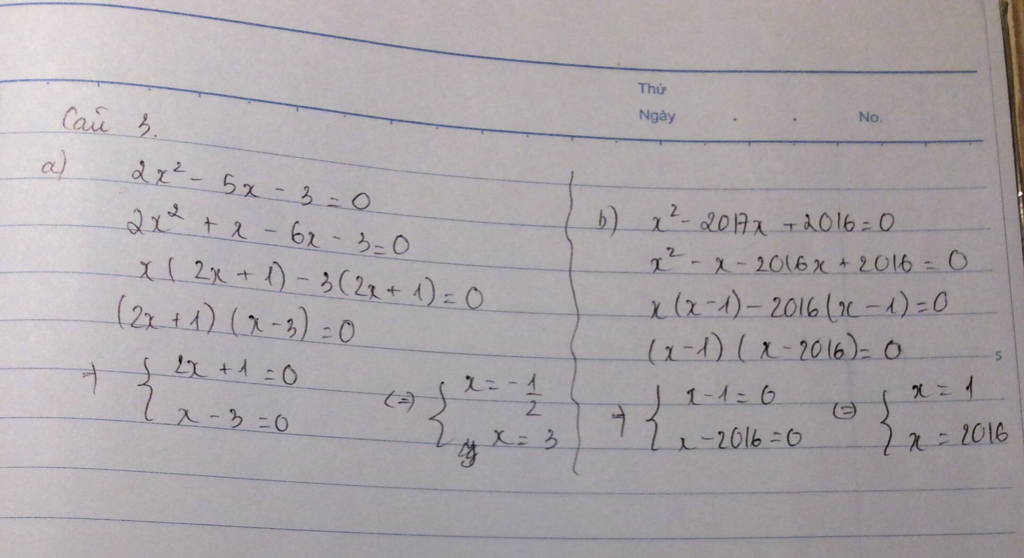 Thứ
Ngày . . No.
Câu 3.
a)
2x² - 5x - 3 = 0
2x² + x - 6x - 3 = 0
x ( 2x + 1) - 3(2x + 1) = 0
(2x + 1) (x - 3) = 0
→ { 2x + 1 = 0
x - 3 = 0
(=) { x = - 1/2
x = 3
b) x² - 2017x + 2016 = 0
x² - x - 2016x + 2016 = 0
x (x - 1) - 2016 (x - 1) = 0
(x - 1) ( x - 2016) = 0
→ { x - 1 = 0
x - 2016 = 0
(=) { x = 1
x = 2016
5